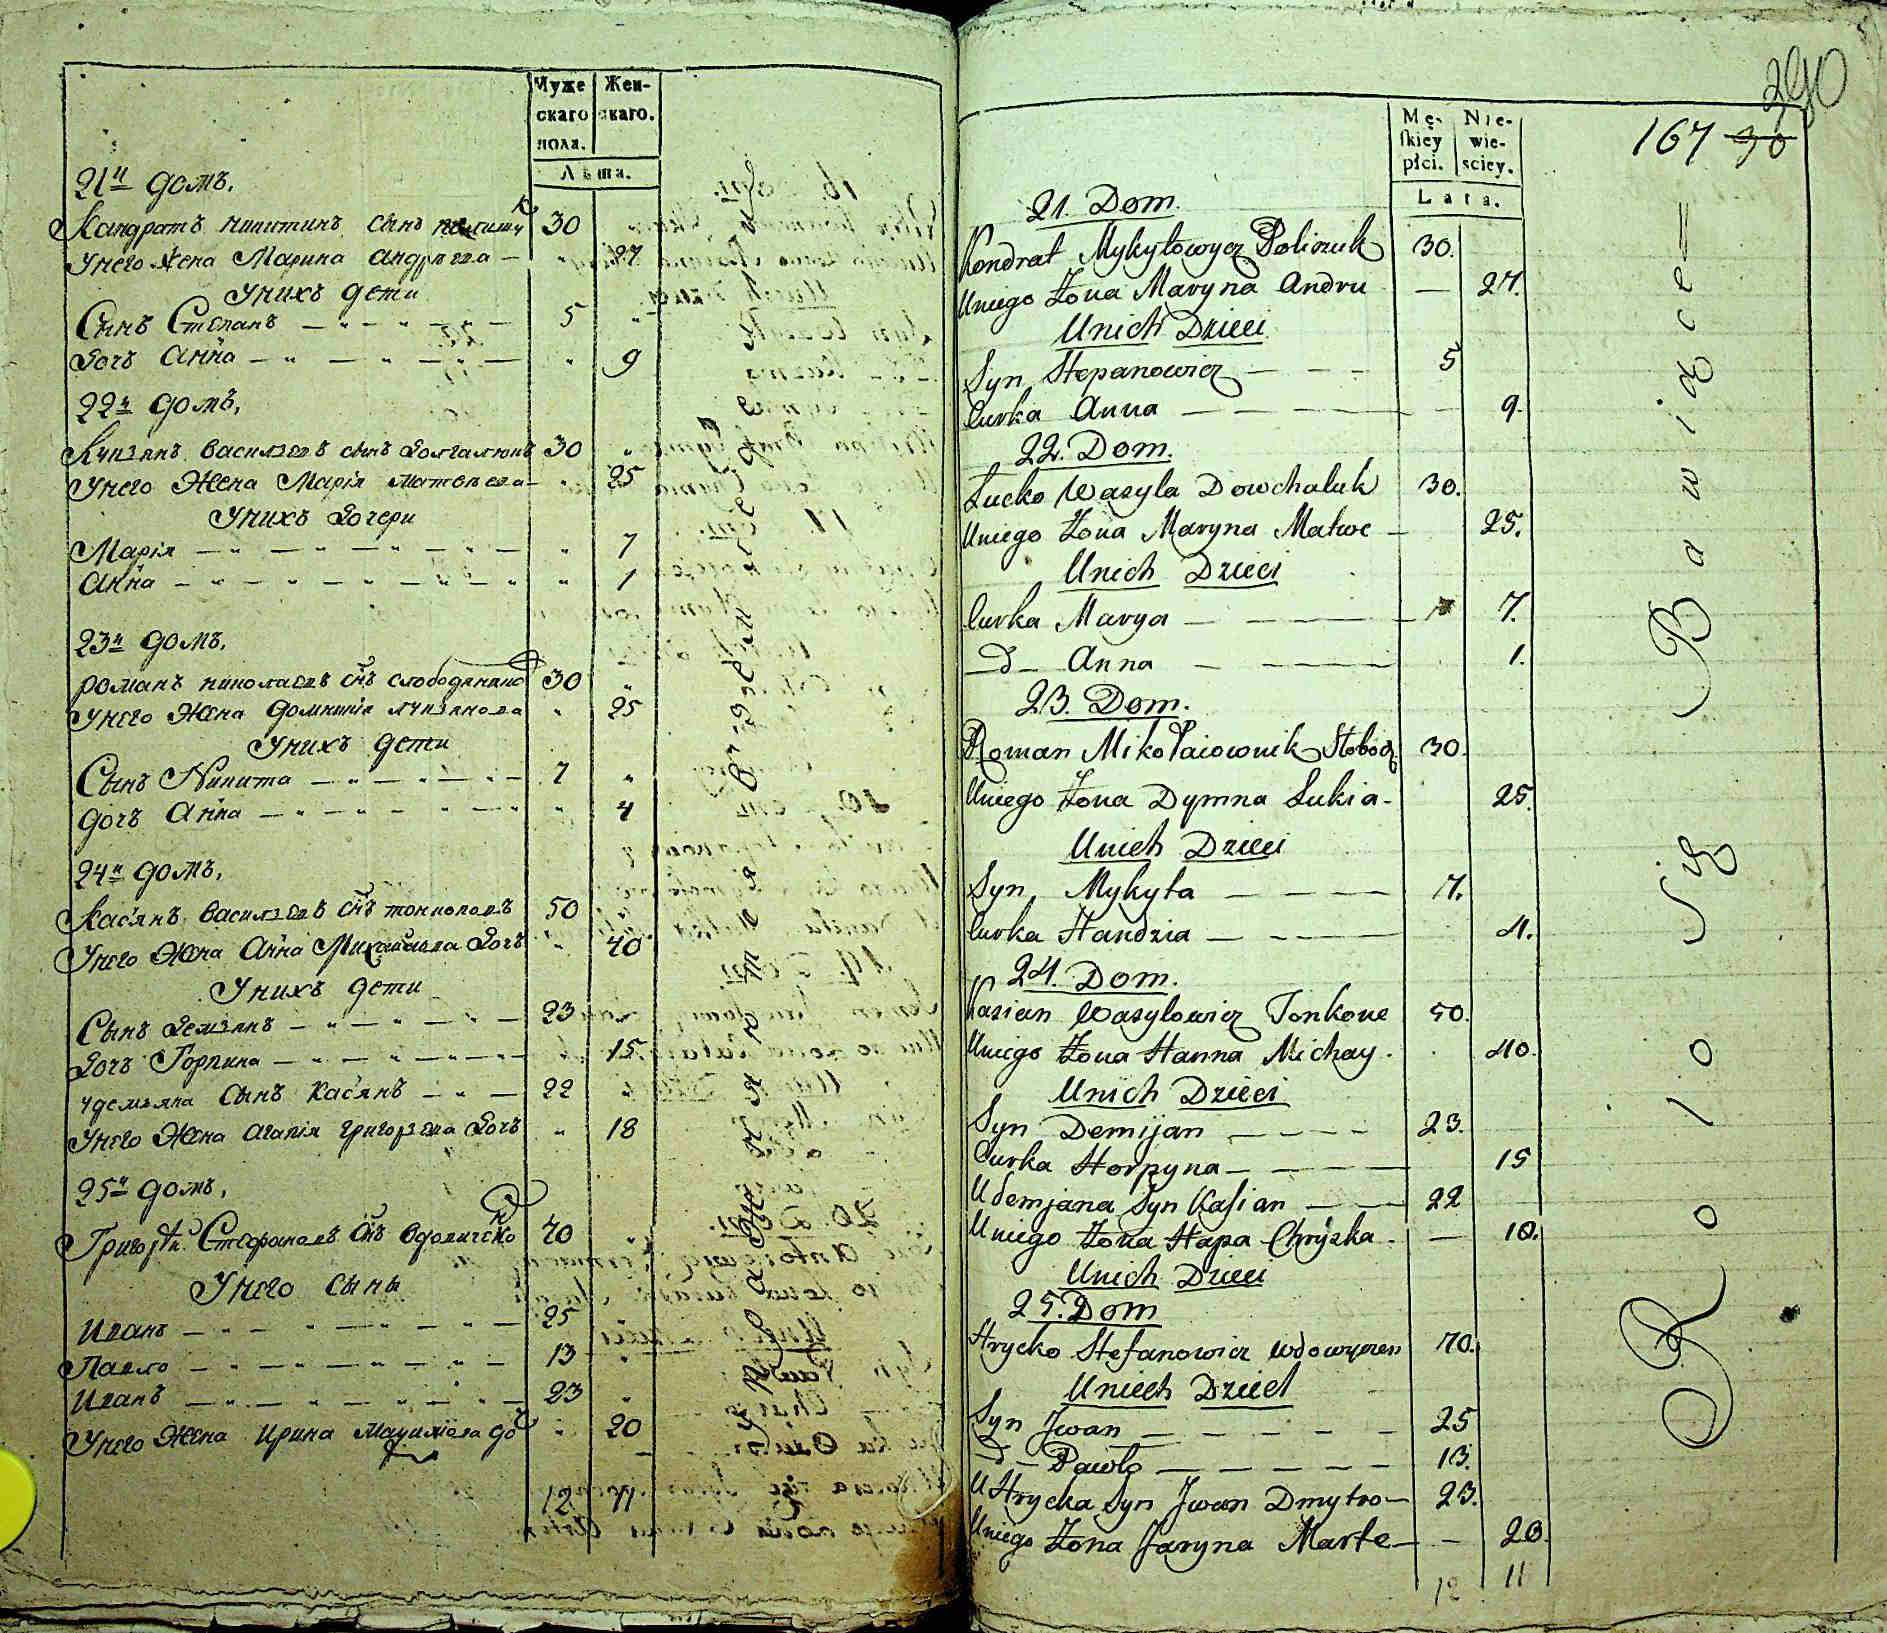 Муже
скаго
пола.
Жен-
скаго.
Лѣта.
21й домъ.
Кандратъ никитинъ сынъ полищук 30
Унего жена Марина андреева — 27
Унихъ дети
Сынъ Степанъ — 5
Дочъ Анна — 9
22й домъ,
Лукіянъ васильевъ сынъ Довгалюкъ 30
Унего Жена Марія Матвеева — 25
Унихъ Дочери
Марія — 7
Анна — 1
23й домъ,
романъ николаевъ снъ слободянико 30
Унего Жена Домникія лукіянова 25
Унихъ дети
Сынъ Никита — 7
дочъ Анна — 4
24й домъ,
Касянъ васильевъ снъ тонкоповъ 50
Унего Жена Анна Михайлова Дочъ 40
Унихъ дети
Сынъ Демянъ — 23
Дочъ Горпина — 15
удемьяна Сынъ Касянъ — 22
Унего Жена агапія григорьева Дочъ 18
25й домъ,
Григорей Стефановъ снъ 70
Унего сыны
Иванъ — 25
Павло — 13
Иванъ — 23
Унего Жена ирина доч 20
12 11
290
167 30
Mę-
skiéy
płci.
Nie-
wie-
sciey.
Lata.
21. Dom.
Kondrat Mykytowycz Poliszuk 30.
Uniego Żona Maryna Andru — 27.
Unich Dzieci
Syn Stepanowicz — 5
Curka Anna — 9.
22. Dom.
Łucko Wasyla Dowhaluk 30.
Uniego Żona Maryna Matwe — 25.
Unich Dzieci
Curka Marya — 7.
—d— Anna — 1.
23. Dom.
Roman Mikołaiownik Słobod 30.
Uniego Żona Dymna Lukia- 25.
Unich Dzieci
Syn, Mykyta — 7.
Curka Handzia — 4.
24. Dom.
Kasian Wasylowicz Tonkone 50.
Uniego Żona Hanna Michay. 40.
Unich Dzieci
Syn Demijan — 23.
Curka Horpyna — 15
Udemjana Syn Kasian — 22
Uniego Żona Hapa Chryzka. — 18.
Unich Dzieci
25. Dom
Hrycko Stefanowicz Wdowyczen 70.
Uniech Dzieci
Syn Jwan — 25
—d— Pawlo — 13.
U Hrycka Syn Jwan Dmytro — 23.
Uniego Żona Jaryna Marte — 20.
12 11
Ro io Się Bawidce